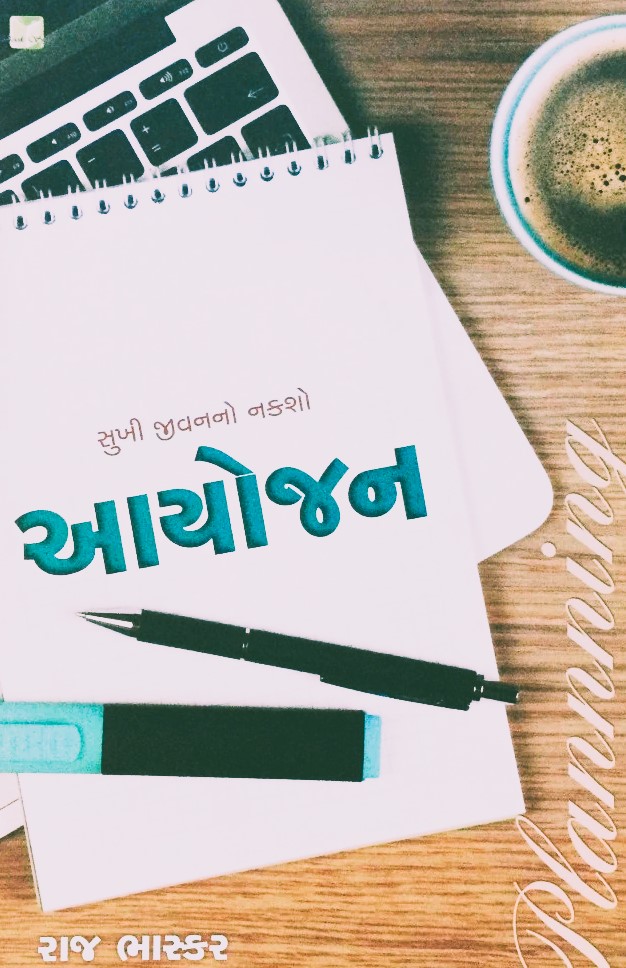 સુખી જીવનનો નકશો
આયોજન
Plannning
રાજ ભાસ્કર